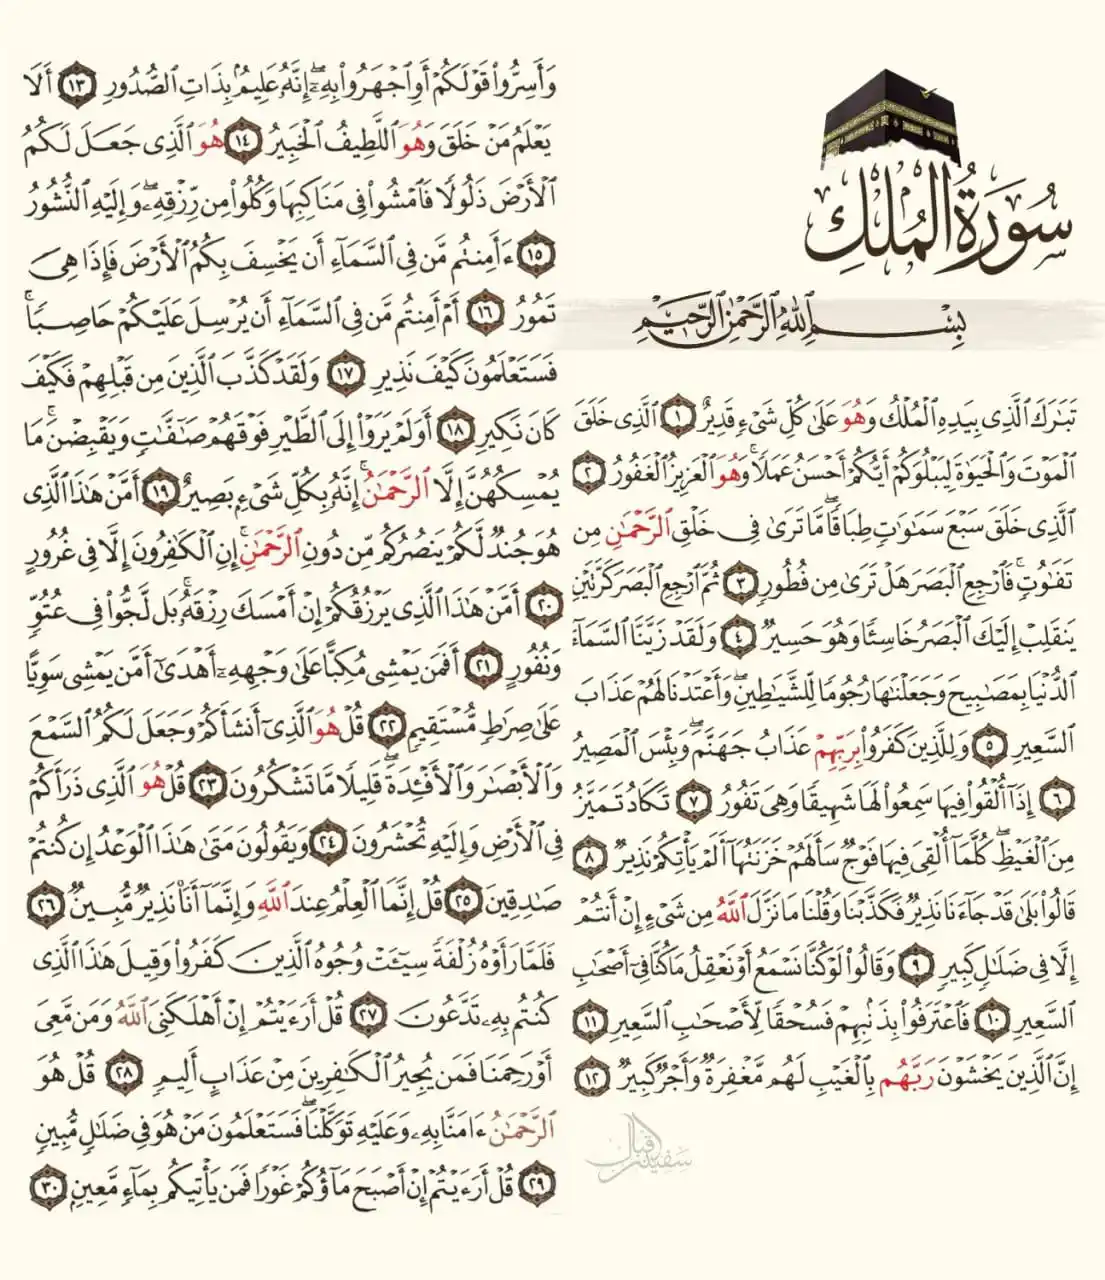 سُورَةُ الْمُلْكِ
بِسْمِ اللَّهِ الرَّحْمَٰنِ الرَّحِيمِ
تَبَٰرَكَ ٱلَّذِى بِيَدِهِ ٱلْمُلْكُ وَهُوَ عَلَىٰ كُلِّ شَىْءٍ قَدِيرٌ ١ ٱلَّذِى خَلَقَ
ٱلْمَوْتَ وَٱلْحَيَوٰةَ لِيَبْلُوَكُمْ أَيُّكُمْ أَحْسَنُ عَمَلًا ۚ وَهُوَ ٱلْعَزِيزُ ٱلْغَفُورُ ٢
ٱلَّذِى خَلَقَ سَبْعَ سَمَٰوَٰتٍ طِبَاقًا ۖ مَّا تَرَىٰ فِى خَلْقِ ٱلرَّحْمَٰنِ مِن
تَفَٰوُتٍ ۖ فَٱرْجِعِ ٱلْبَصَرَ هَلْ تَرَىٰ مِن فُطُورٍ ٣ ثُمَّ ٱرْجِعِ ٱلْبَصَرَ كَرَّتَيْنِ
يَنقَلِبْ إِلَيْكَ ٱلْبَصَرُ خَاسِئًا وَهُوَ حَسِيرٌ ٤ وَلَقَدْ زَيَّنَّا ٱلسَّمَآءَ
ٱلدُّنْيَا بِمَصَٰبِيحَ وَجَعَلْنَٰهَا رُجُومًا لِّلشَّيَٰطِينِ ۖ وَأَعْتَدْنَا لَهُمْ عَذَابَ
ٱلسَّعِيرِ ٥ وَلِلَّذِينَ كَفَرُوا۟ بِرَبِّهِمْ عَذَابُ جَهَنَّمَ ۖ وَبِئْسَ ٱلْمَصِيرُ
٦ إِذَآ أُلْقُوا۟ فِيهَا سَمِعُوا۟ لَهَا شَهِيقًا وَهِىَ تَفُورُ ٧ تَكَادُ تَمَيَّزُ
مِنَ ٱلْغَيْظِ ۖ كُلَّمَآ أُلْقِىَ فِيهَا فَوْجٌ سَأَلَهُمْ خَزَنَتُهَآ أَلَمْ يَأْتِكُمْ نَذِيرٌ ٨
قَالُوا۟ بَلَىٰ قَدْ جَآءَنَا نَذِيرٌ فَكَذَّبْنَا وَقُلْنَا مَا نَزَّلَ ٱللَّهُ مِن شَىْءٍ إِنْ أَنتُمْ
إِلَّا فِى ضَلَٰلٍ كَبِيرٍ ٩ وَقَالُوا۟ لَوْ كُنَّا نَسْمَعُ أَوْ نَعْقِلُ مَا كُنَّا فِىٓ أَصْحَٰبِ
ٱلسَّعِيرِ ١٠ فَٱعْتَرَفُوا۟ بِذَنۢبِهِمْ فَسُحْقًا لِّأَصْحَٰبِ ٱلسَّعِيرِ ١١
إِنَّ ٱلَّذِينَ يَخْشَوْنَ رَبَّهُم بِٱلْغَيْبِ لَهُم مَّغْفِرَةٌ وَأَجْرٌ كَبِيرٌ ١٢
وَأَسِرُّوا۟ قَوْلَكُمْ أَوِ ٱجْهَرُوا۟ بِهِۦٓ ۖ إِنَّهُۥ عَلِيمٌۢ بِذَاتِ ٱلصُّدُورِ ١٣ أَلَا
يَعْلَمُ مَنْ خَلَقَ وَهُوَ ٱللَّطِيفُ ٱلْخَبِيرُ ١٤ هُوَ ٱلَّذِى جَعَلَ لَكُمُ
ٱلْأَرْضَ ذَلُولًا فَٱمْشُوا۟ فِى مَنَاكِبِهَا وَكُلُوا۟ مِن رِّزْقِهِۦ ۖ وَإِلَيْهِ ٱلنُّشُورُ
١٥ ءَأَمِنتُم مَّن فِى ٱلسَّمَآءِ أَن يَخْسِفَ بِكُمُ ٱلْأَرْضَ فَإِذَا هِىَ
تَمُورُ ١٦ أَمْ أَمِنتُم مَّن فِى ٱلسَّمَآءِ أَن يُرْسِلَ عَلَيْكُمْ حَاصِبًا ۖ
فَسَتَعْلَمُونَ كَيْفَ نَذِيرِ ١٧ وَلَقَدْ كَذَّبَ ٱلَّذِينَ مِن قَبْلِهِمْ فَكَيْفَ
كَانَ نَكِيرِ ١٨ أَوَلَمْ يَرَوْا۟ إِلَى ٱلطَّيْرِ فَوْقَهُمْ صَٰٓفَّٰتٍ وَيَقْبِضْنَ ۚ مَا
يُمْسِكُهُنَّ إِلَّا ٱلرَّحْمَٰنُ ۚ إِنَّهُۥ بِكُلِّ شَىْءٍۭ بَصِيرٌ ١٩ أَمَّنْ هَٰذَا ٱلَّذِى
هُوَ جُندٌ لَّكُمْ يَنصُرُكُم مِّن دُونِ ٱلرَّحْمَٰنِ ۚ إِنِ ٱلْكَٰفِرُونَ إِلَّا فِى غُرُورٍ
٢٠ أَمَّنْ هَٰذَا ٱلَّذِى يَرْزُقُكُمْ إِنْ أَمْسَكَ رِزْقَهُۥ ۚ بَل لَّجُّوا۟ فِى عُتُوٍّ
وَنُفُورٍ ٢١ أَفَمَن يَمْشِى مُكِبًّا عَلَىٰ وَجْهِهِۦٓ أَهْدَىٰٓ أَمَّن يَمْشِى سَوِيًّا
عَلَىٰ صِرَٰطٍ مُّسْتَقِيمٍ ٢٢ قُلْ هُوَ ٱلَّذِىٓ أَنشَأَكُمْ وَجَعَلَ لَكُمُ ٱلسَّمْعَ
وَٱلْأَبْصَٰرَ وَٱلْأَفْـِٔدَةَ ۖ قَلِيلًا مَّا تَشْكُرُونَ ٢٣ قُلْ هُوَ ٱلَّذِى ذَرَأَكُمْ
فِى ٱلْأَرْضِ وَإِلَيْهِ تُحْشَرُونَ ٢٤ وَيَقُولُونَ مَتَىٰ هَٰذَا ٱلْوَعْدُ إِن كُنتُمْ
صَٰدِقِينَ ٢٥ قُلْ إِنَّمَا ٱلْعِلْمُ عِندَ ٱللَّهِ وَإِنَّمَآ أَنَا۠ نَذِيرٌ مُّبِينٌ ٢٦
فَلَمَّا رَأَوْهُ زُلْفَةً سِيٓـَٔتْ وُجُوهُ ٱلَّذِينَ كَفَرُوا۟ وَقِيلَ هَٰذَا ٱلَّذِى
كُنتُم بِهِۦ تَدَّعُونَ ٢٧ قُلْ أَرَءَيْتُمْ إِنْ أَهْلَكَنِىَ ٱللَّهُ وَمَن مَّعِىَ
أَوْ رَحِمَنَا فَمَن يُجِيرُ ٱلْكَٰفِرِينَ مِنْ عَذَابٍ أَلِيمٍ ٢٨ قُلْ هُوَ
ٱلرَّحْمَٰنُ ءَامَنَّا بِهِۦ وَعَلَيْهِ تَوَكَّلْنَا ۖ فَسَتَعْلَمُونَ مَنْ هُوَ فِى ضَلَٰلٍ مُّبِينٍ
٢٩ قُلْ أَرَءَيْتُمْ إِنْ أَصْبَحَ مَآؤُكُمْ غَوْرًا فَمَن يَأْتِيكُم بِمَآءٍ مَّعِينٍۭ ٣٠